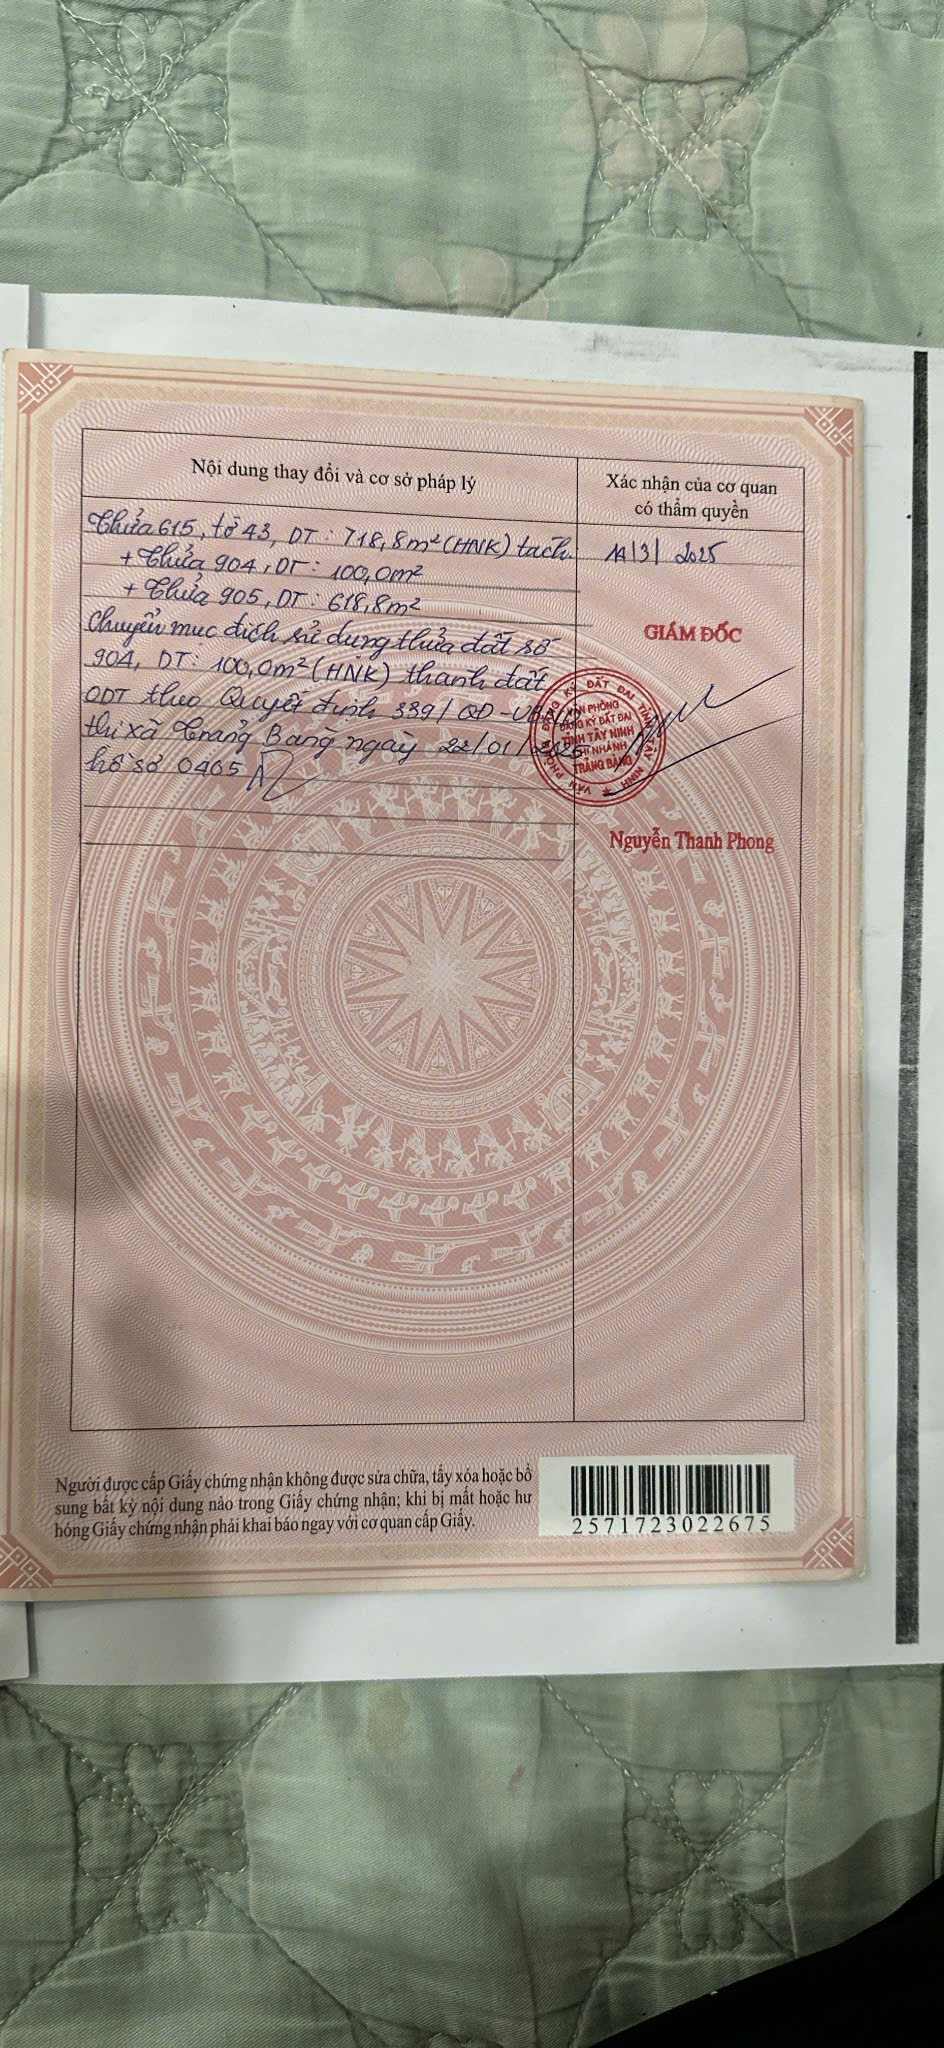 Nội dung thay đổi và cơ sở pháp lý
Xác nhận của cơ quan
có thẩm quyền
Thửa 615, tờ 43, DT: 718,8m² (HNK) tách
+ Thửa 904, DT: 100,0m²
+ Thửa 905, DT: 618,8m²
Chuyển mục đích sử dụng thửa đất số
904, DT: 100,0m² (HNK) thành đất
ODT theo Quyết định 339/QĐ-UBND
thị xã Trảng Bàng ngày 22/01/2025
hồ sơ 0465
14/3/2025
GIÁM ĐỐC
VĂN PHÒNG ĐĂNG KÝ ĐẤT ĐAI TỈNH TÂY NINH
VĂN PHÒNG
ĐĂNG KÝ ĐẤT ĐAI
TỈNH TÂY NINH
CHI NHÁNH
TRẢNG BÀNG
Nguyễn Thanh Phong
Người được cấp Giấy chứng nhận không được sửa chữa, tẩy xóa hoặc bổ
sung bất kỳ nội dung nào trong Giấy chứng nhận; khi bị mất hoặc hư
hỏng Giấy chứng nhận phải khai báo ngay với cơ quan cấp Giấy.
2571723022675